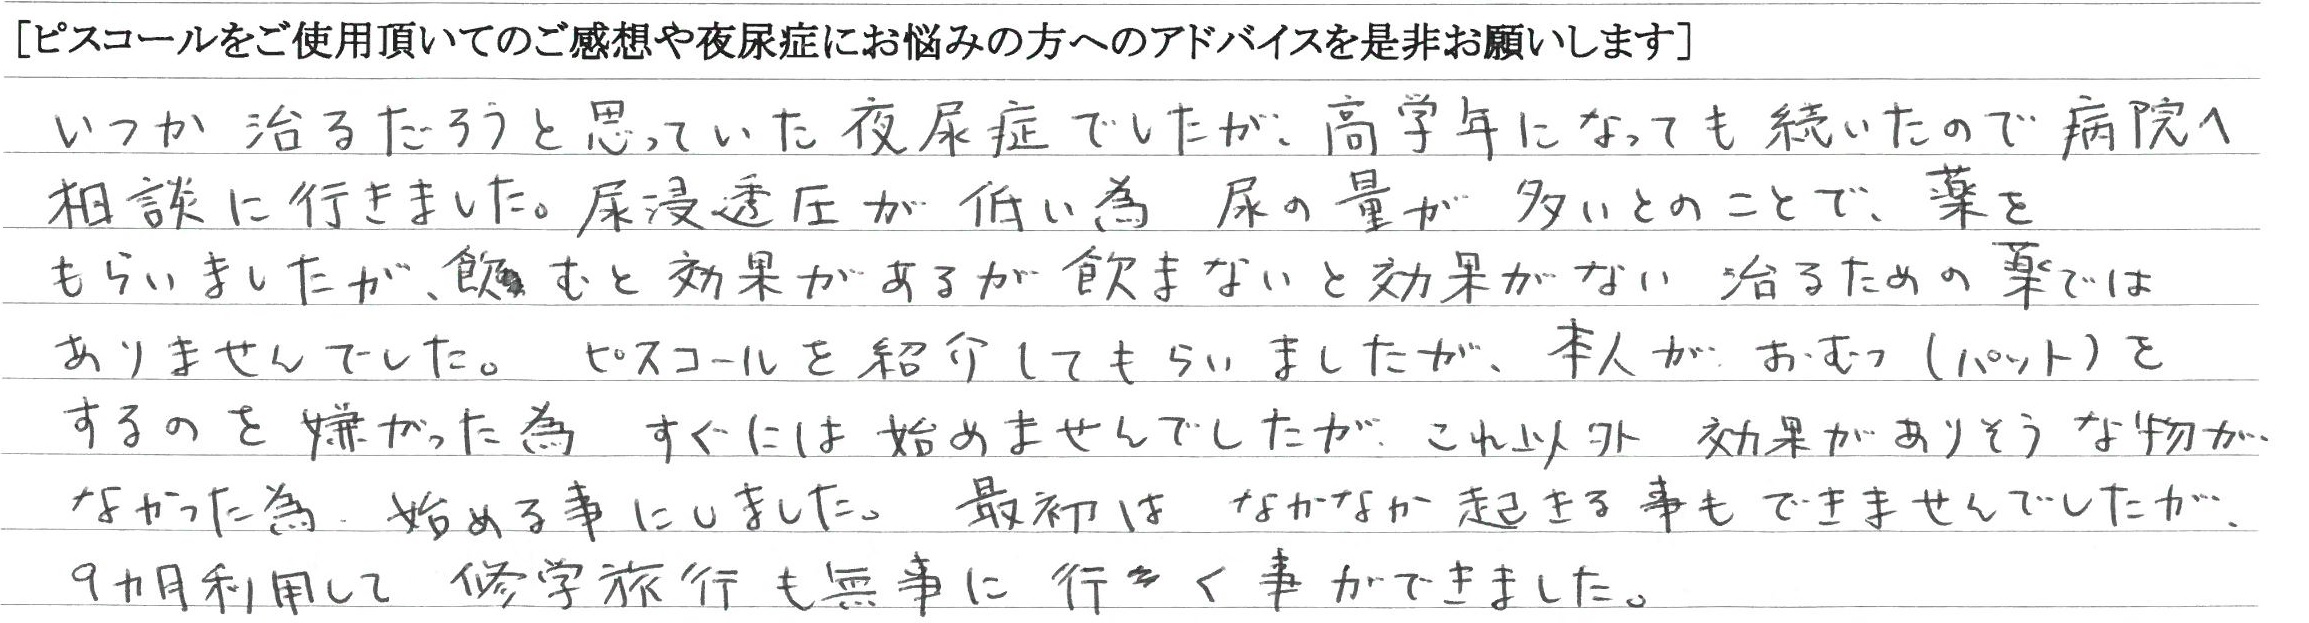 [ピスコールをご使用頂いてのご感想や夜尿症にお悩みの方へのアドバイスを是非お願いします]
いつか治るだろうと思っていた夜尿症でしたが、高学年になっても続いたので病院へ
相談に行きました。尿浸透圧が低い為 尿の量が多いとのことで、薬を
もらいましたが、飲むと効果があるが飲まないと効果がない 治るための薬では
ありませんでした。 ピスコールを紹介してもらいましたが、本人がおむつ(パット)を
するのを嫌がった為 すぐには始めませんでしたが、これ以外 効果がありそうな物が
なかった為、始める事にしました。 最初は なかなか起きる事もできませんでしたが、
9カ月利用して 修学旅行も無事に行く事ができました。